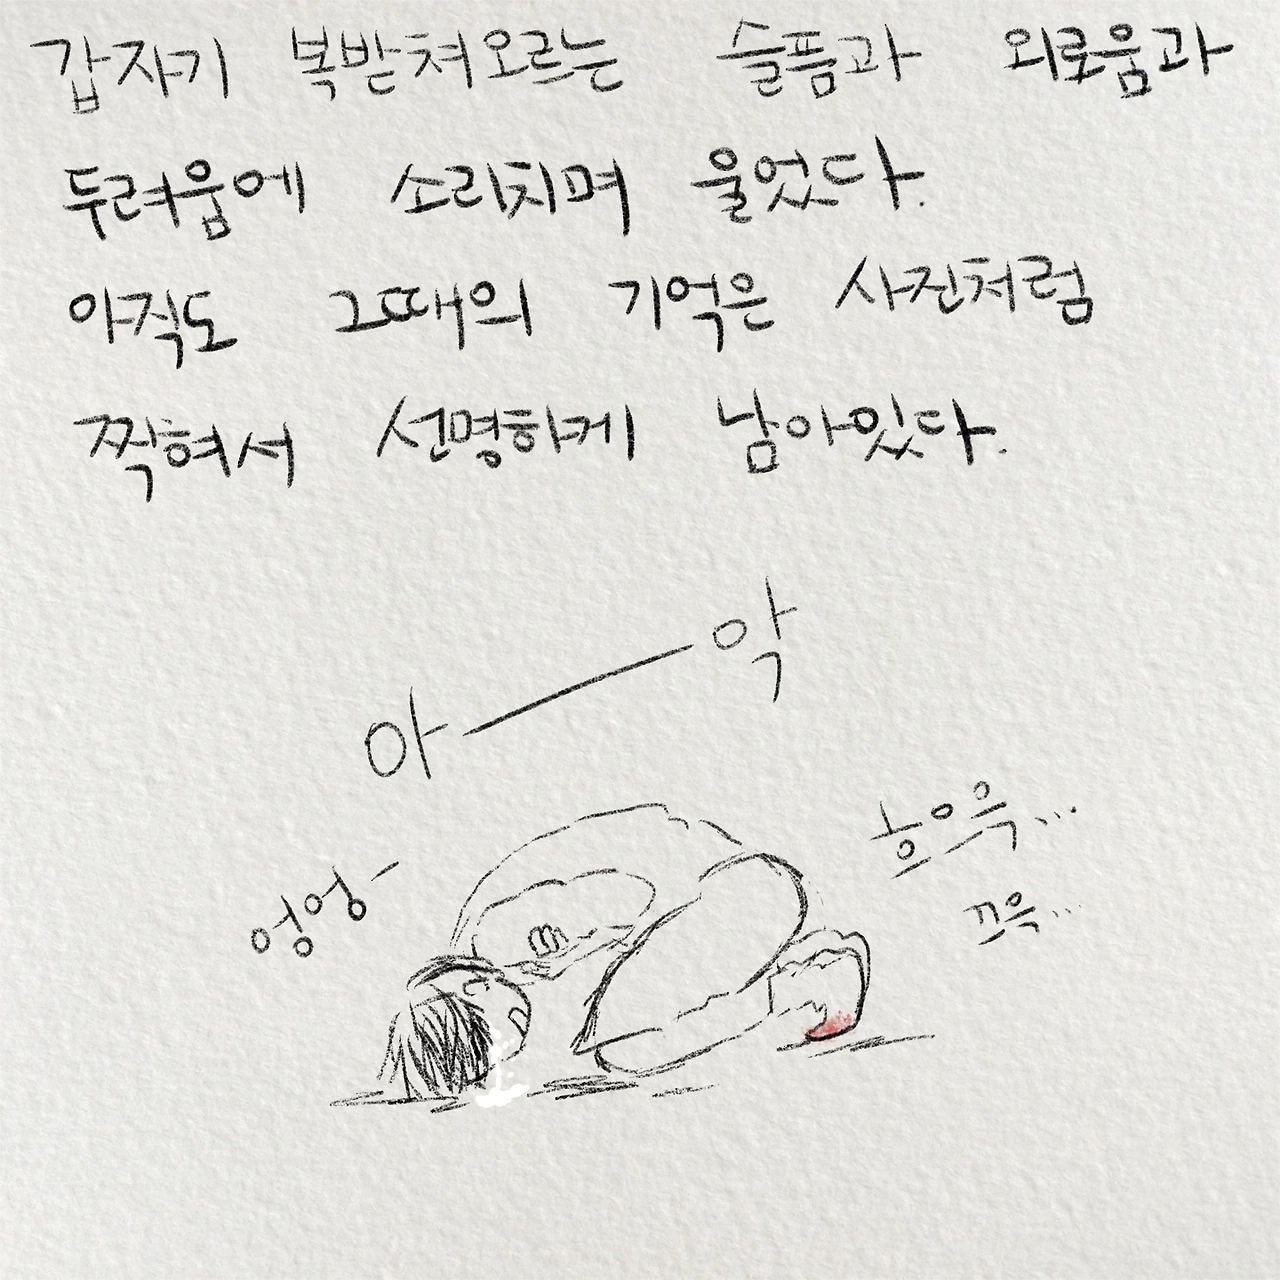 갑자기 복받쳐오르는 슬픔과 외로움과
두려움에 소리치며 울었다.
아직도 그때의 기억은 사진처럼
찍혀서 선명하게 남아있다.
아—악
엉엉-
흐으윽...
끄윽...